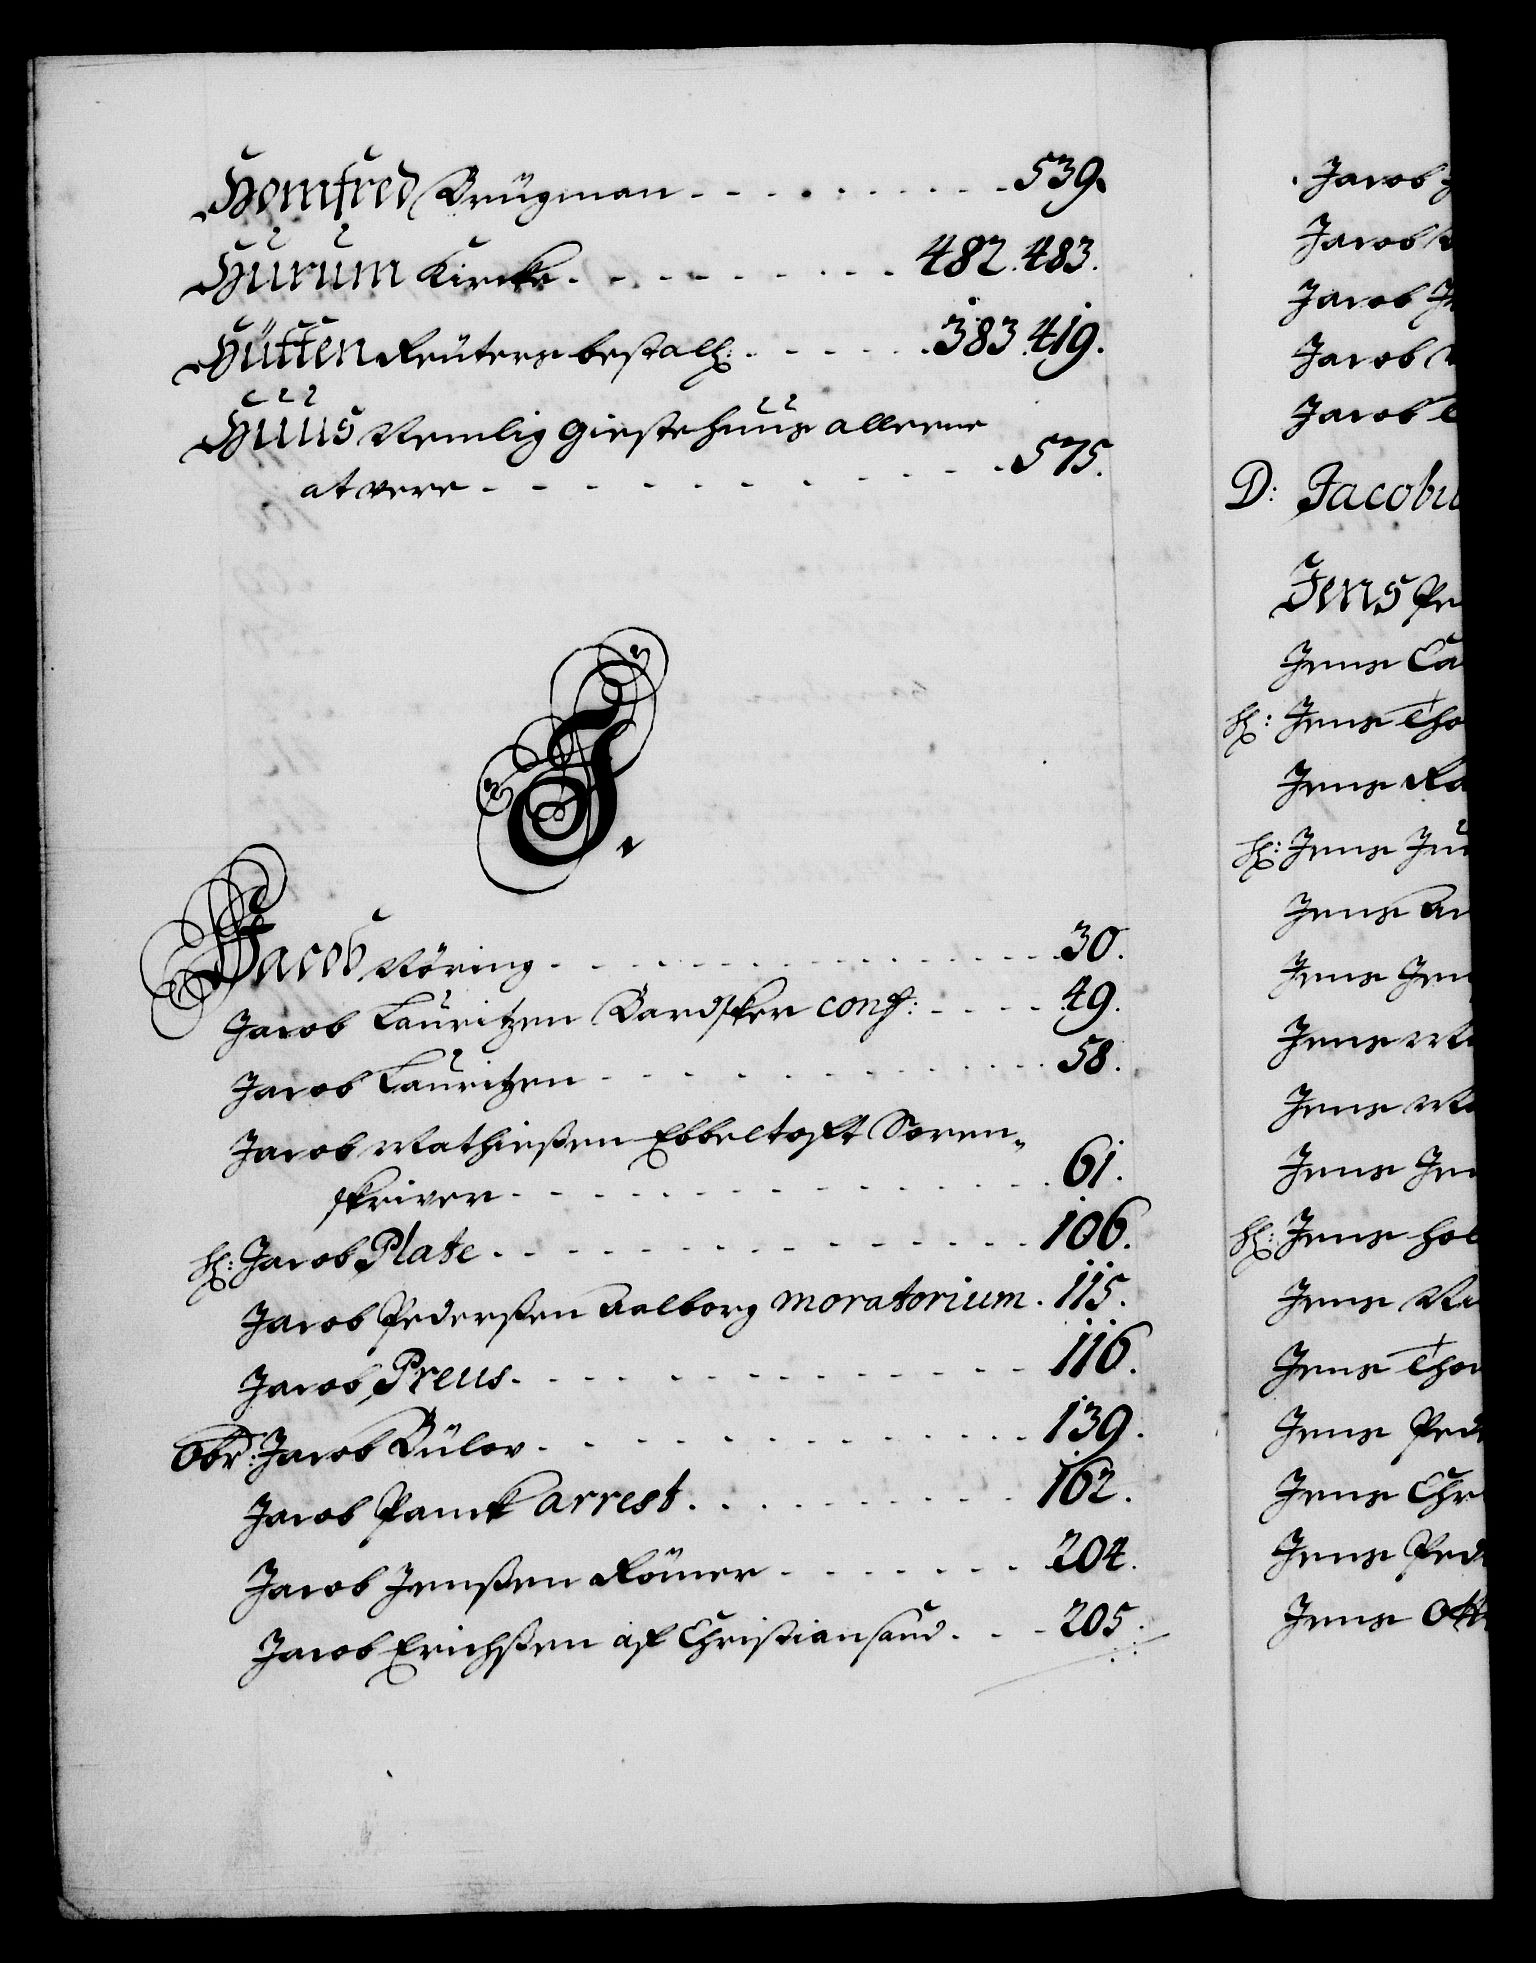 Homfred Brügman . . . . . . . . . . 539.
Hurum Kircke . . . . . . . . 482. 483.
Hütten Reüters bestall: . . . . . 383. 419.
Huus Nemlig Giestehuus alleene
at were . . . . . . . . . . . 575.
J.
Jacob Nöring . . . . . . . . . . . 30.
Jacob Lauritzen Bardsker conf: . . . . 49.
Jacob Lauritzen . . . . . . . . . . 58.
Jacob Mathießen Ebbeltoft Soren-
skriver . . . . . . . . . . . . 61.
H: Jacob Plate . . . . . . . . . . . 106.
Jacob Pederßen Aalborg moratorium . 115.
Jacob Preus . . . . . . . . . . . 116.
Obr: Jacob Bülov . . . . . . . . . . 139.
Jacob Panck arrest . . . . . . . . 162.
Jacob Jenßen Römer . . . . . . . 204.
Jacob Erichßen af Christiansand . . . 205.
Jacob
Jacob
Jacob
Jacob
Jacob
D: Jacobu
Jens Pe
Jens Ca
H: Jens Tho
Jens Ra
H: Jens Ju
Jens
Jens Jen
Jens
Jens
Jens Jen
H: Jens Hol
Jens
Jens Tho
Jens Ped
Jens Chr
Jens Ped
Jens Ott